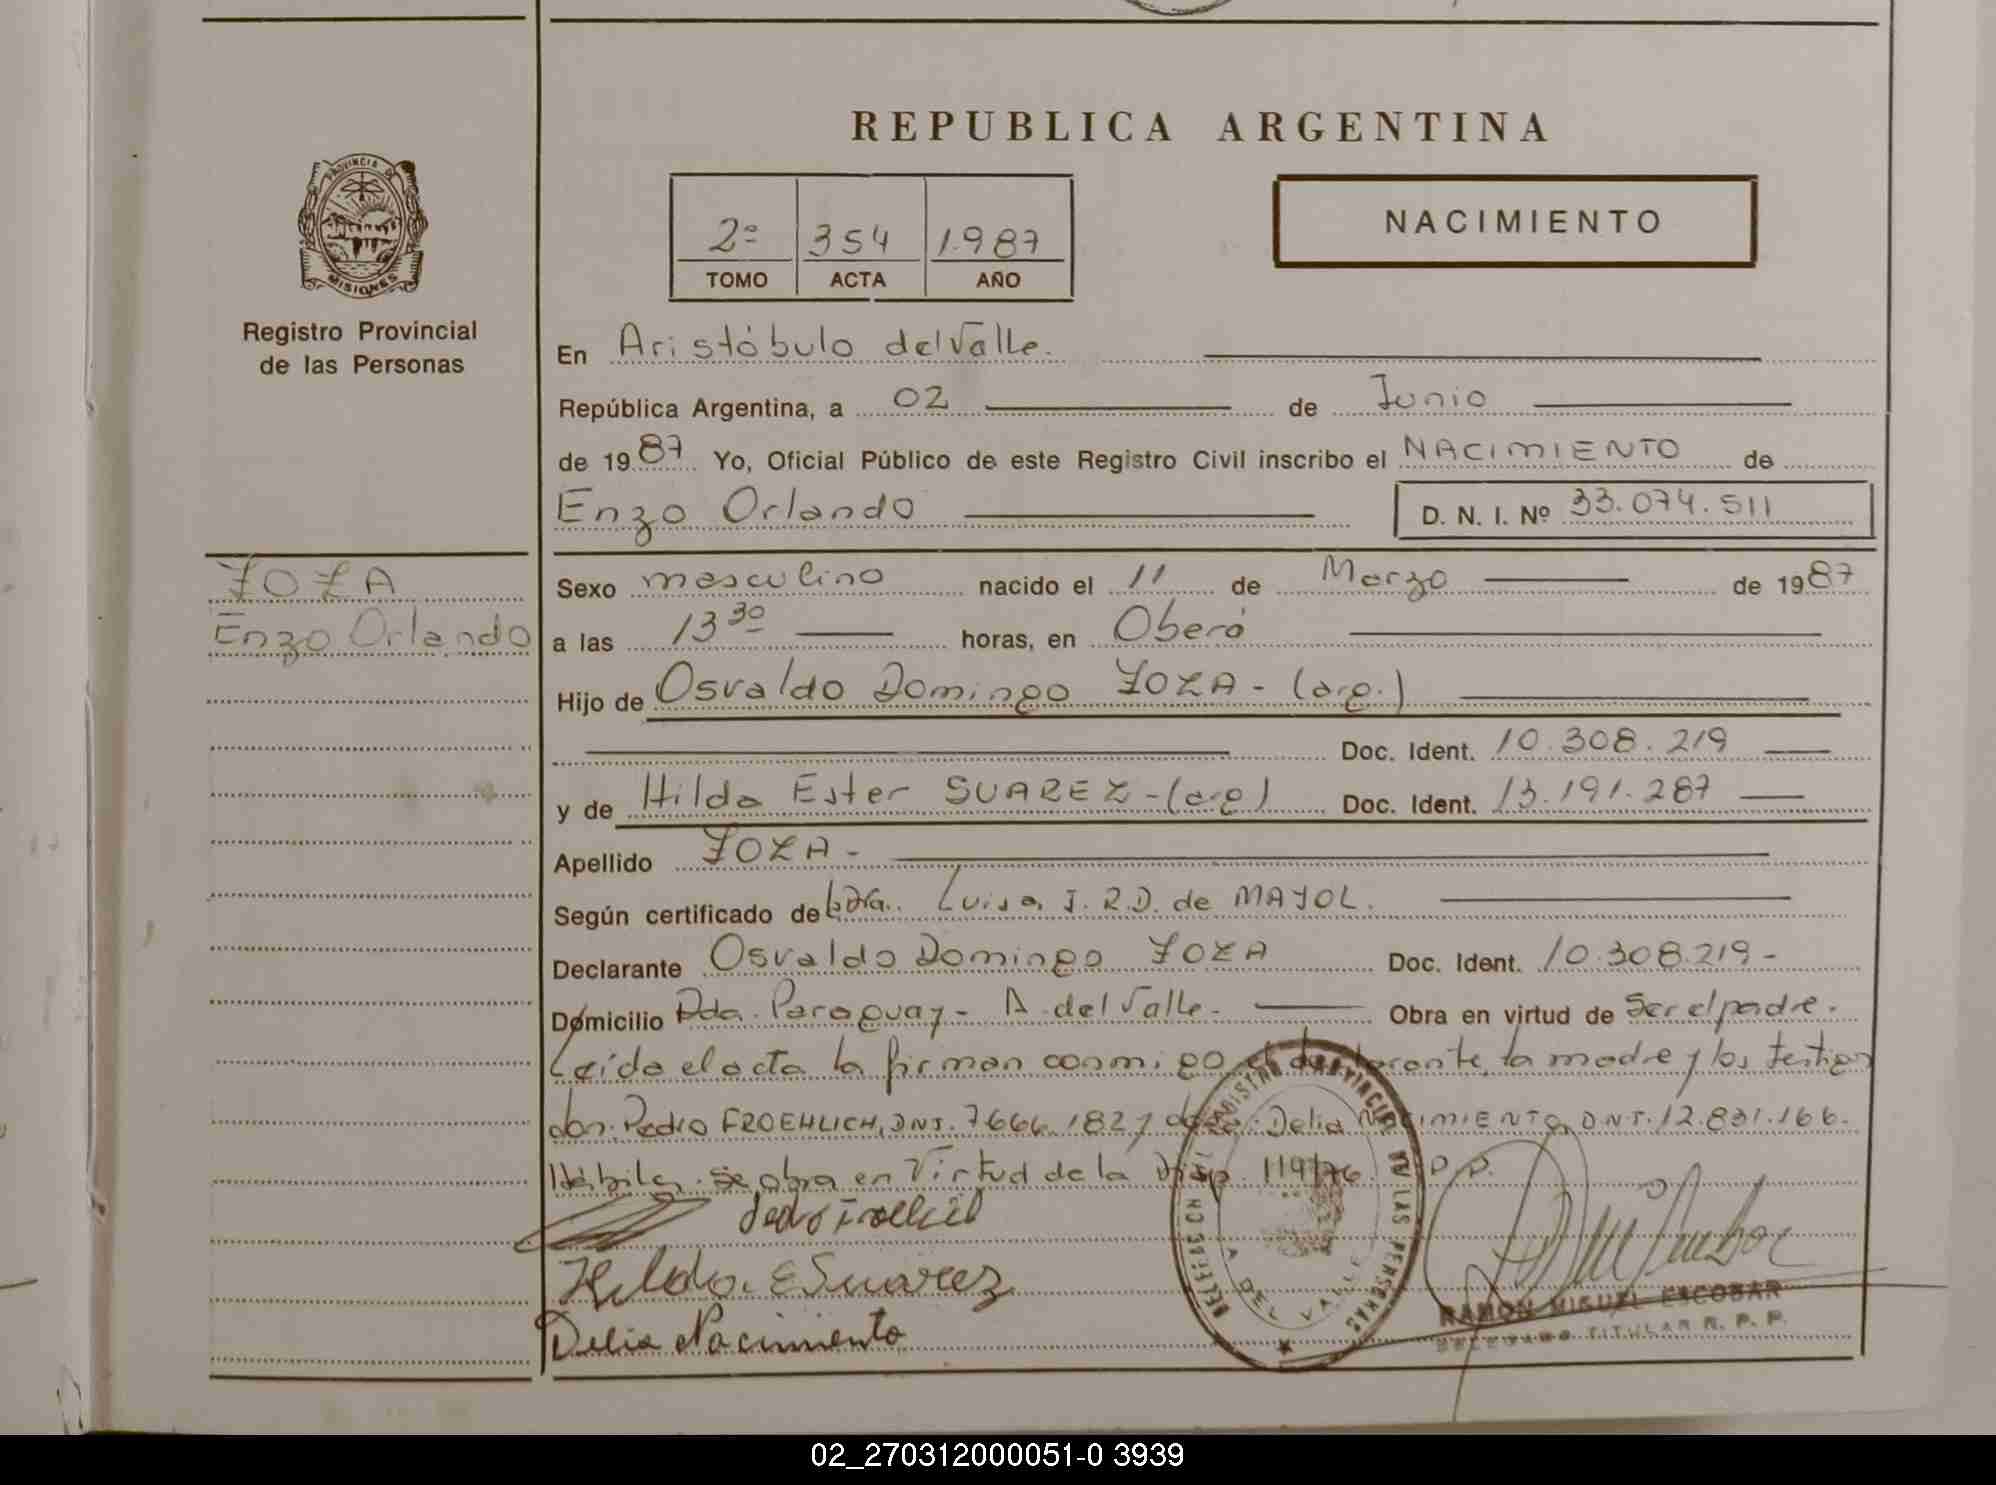 REPUBLICA ARGENTINA
PROVINCIA DE
MISIONES
Registro Provincial
de las Personas
2º 354 1.987
TOMO ACTA AÑO
NACIMIENTO
En Aristóbulo del Valle.
República Argentina, a 02 de Junio
de 1987 Yo, Oficial Público de este Registro Civil inscribo el NACIMIENTO de
Enzo Orlando D. N. I. Nº 33.074.511
ZOZA
Enzo Orlando
Sexo masculino nacido el 11 de Marzo de 1987
a las 13 30 horas, en Oberá
Hijo de Osvaldo Domingo ZOZA - (arg.)
Doc. Ident. 10.308.219
y de Hilda Ester SUAREZ - (arg) Doc. Ident. 13.191.287
Apellido ZOZA -
Según certificado de Dra. Luisa J. R.D. de MAYOL.
Declarante Osvaldo Domingo ZOZA Doc. Ident. 10.308.219-
Domicilio Pda. Paraguay - A. del Valle - Obra en virtud de Ser el padre.
Leída el acta la firman conmigo el declarante, la madre y los testigos
don: Pedro FROEHLICH, DNI. 7.666.182 y doña: Delia NACIMIENTO, DNI. 12.831.166.
Hábiles. Se obra en Virtud de la Disp. 119/76. R.P.P.
Pedro Froehlich
Hilda E Suarez
Delia Nacimiento
DELEGACION REGISTRO PROVINCIAL DE LAS PERSONAS
A. DEL VALLE
RAMON MIGUEL ESCOBAR
DELEGADO TITULAR R. P. P.
02_270312000051-0 3939